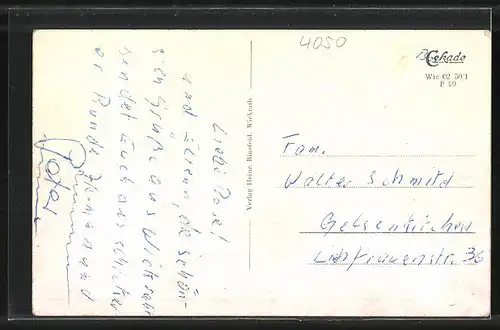 4050
Cekade
Wic 02 50/1
P 69
Verlag Heinz Binefeld, Wickrath
Liebe Rose!
und Eltern, die schön-
sten Grüße aus Wickrath
sendet Euch aus schicker
er Runde
Vater
Fam.
Walter Schmitd
Gelsenkirchen
Liebfrauenstr. 36